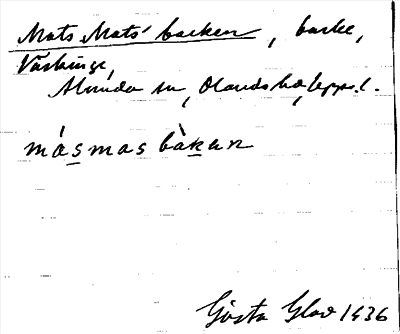 Mats Mats' backen, backe,
Väskinge,
Almunda sn, Olands hd, Upps. l.
màsmas bàkan
Gösta Glad 1936